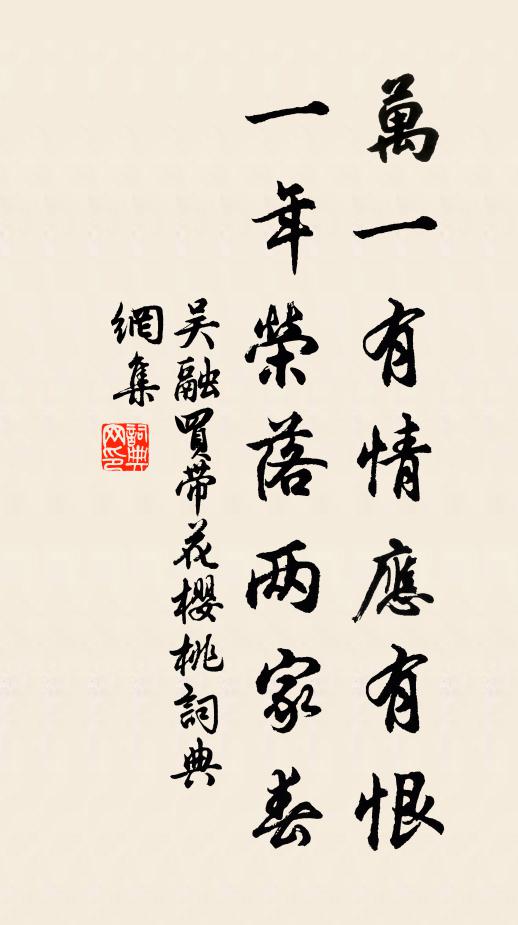 萬一有情應有恨
一年榮落两家春
吴融買带花櫻桃詞典
網集
詞典
网印